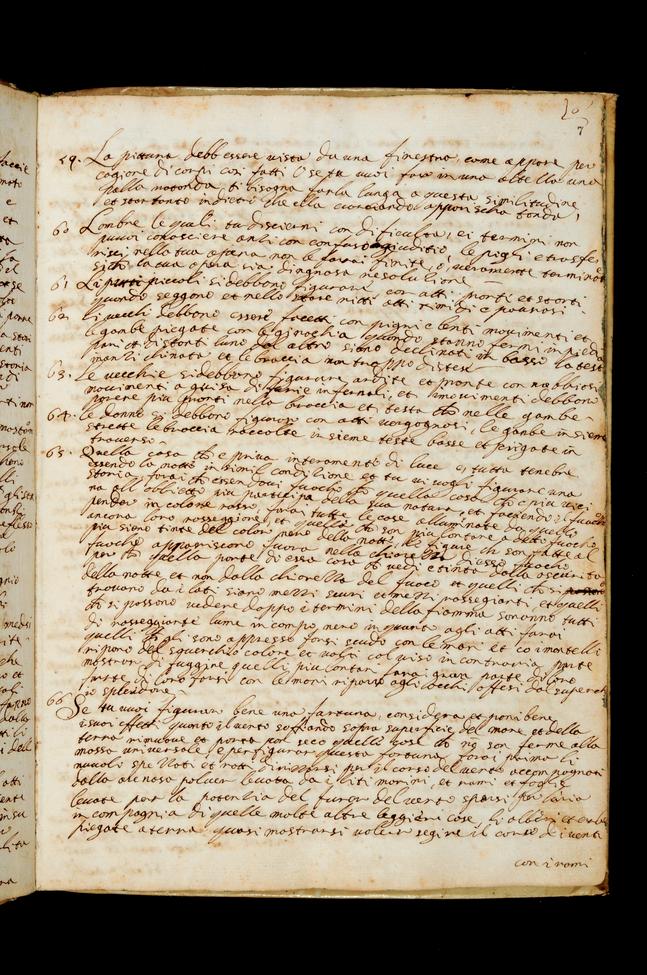 7
59. La pittura debb essere vista da una finestra, come appare per
cagione di corpi così fatti O se tu vuoi fare in una altezza una
palla rotonda, ti bisogna farla lunga a questa similitudine
et stare tanto indietro che ella scorciando apparischa tonda,
60 L'ombre le quali tu discierni con dificulta, ei termini non
puoi conosciere anzi con confuso giuditio, le pigli e trasfe
risci nella tua opera non le farai finite, o veramente terminate
sichè la tua opera sia d'ingniosa resolutione
61 Li putti piccoli si debbono figurare con atti pronti et storti
quando seggono et nello stare ritti atti timidi e paurosi
62. Li vecchi debbono essere facti con pigri e lenti movimenti et
le gambe piegate con le ginochia quando stanno fermi in piedi
pari et distanti luno dal altro siano declinati in basso la testa
inanzi chinata et le braccia non troppo distese
63. Le vecchie si debbono figurare ardite et pronte con rabbiosi
movimenti a guisa di furie infernali, et i movimenti debbono
parere piu pronti nelle braccia et testa che nelle gambe
64. Le donne si debbono figurare con atti vergognosi, le gambe insieme
strette le braccia raccolte insieme teste basse et piegate in
traverso
65. Quella cosa che e priva interamente di luce e tutta tenebre
essendo la notte in simil conditione et tu vi vogli figurare una
storia farai che essendovi fuocho che quella cosa che e piu vici
na all obbietto piu participa della sua natura, et facendo il fuocho
pendere in colore rosso, farai tutte le cose alluminate da quello
ancora loro rosseggiare, et quelle che son piu lontane a detto fuocho
piu sieno tinte del colore nero della notte, le figure che son fatte al
fuocho appariscono scure nella chiarezza di esso fuocho
per che quella parte di essa cosa che vedi e tinta dalla oscurita
della notte et non dalla chiarezza del fuoco et quelli che si
trovano dai lati siano mezzi scuri et mezzi rosseggianti, et quelli
che si possono vedere doppo i termini della fiamma saranno tutti
di rosseggiante lume in campo nero in quanto agli atti farai
quelli che gli sono appresso farsi scudo con le mani et co i mantelli
riparo del superchio calore et volti col viso in contraria parte
mostrar di fuggire quelli piu lontani farai gran parte di loro
farsi con le mani riparo agli occhi offesi dal superchi
o splendore
66 Se tu vuoi figurare bene una fortuna, considera et poni bene
i suoi effetti quando il vento soffiando sopra superficie del mare et della
terra rimuove et porta con seco quelle cose che non son ferme alla
massa universale, e per figurare questa fortuna farai prima li
nuvoli spezzati et rotti dirizzarsi per il corso del vento accompagnati
dalla arenosa polver levata da i liti marini, et rami et foglie
levate per la potentia del furor del vento sparsi per laria
in compagnia di quelle molte altre leggieri cose, li alberi et erbe
piegate a terra quasi mostrarsi voler seguire il corso de i venti
con i rami